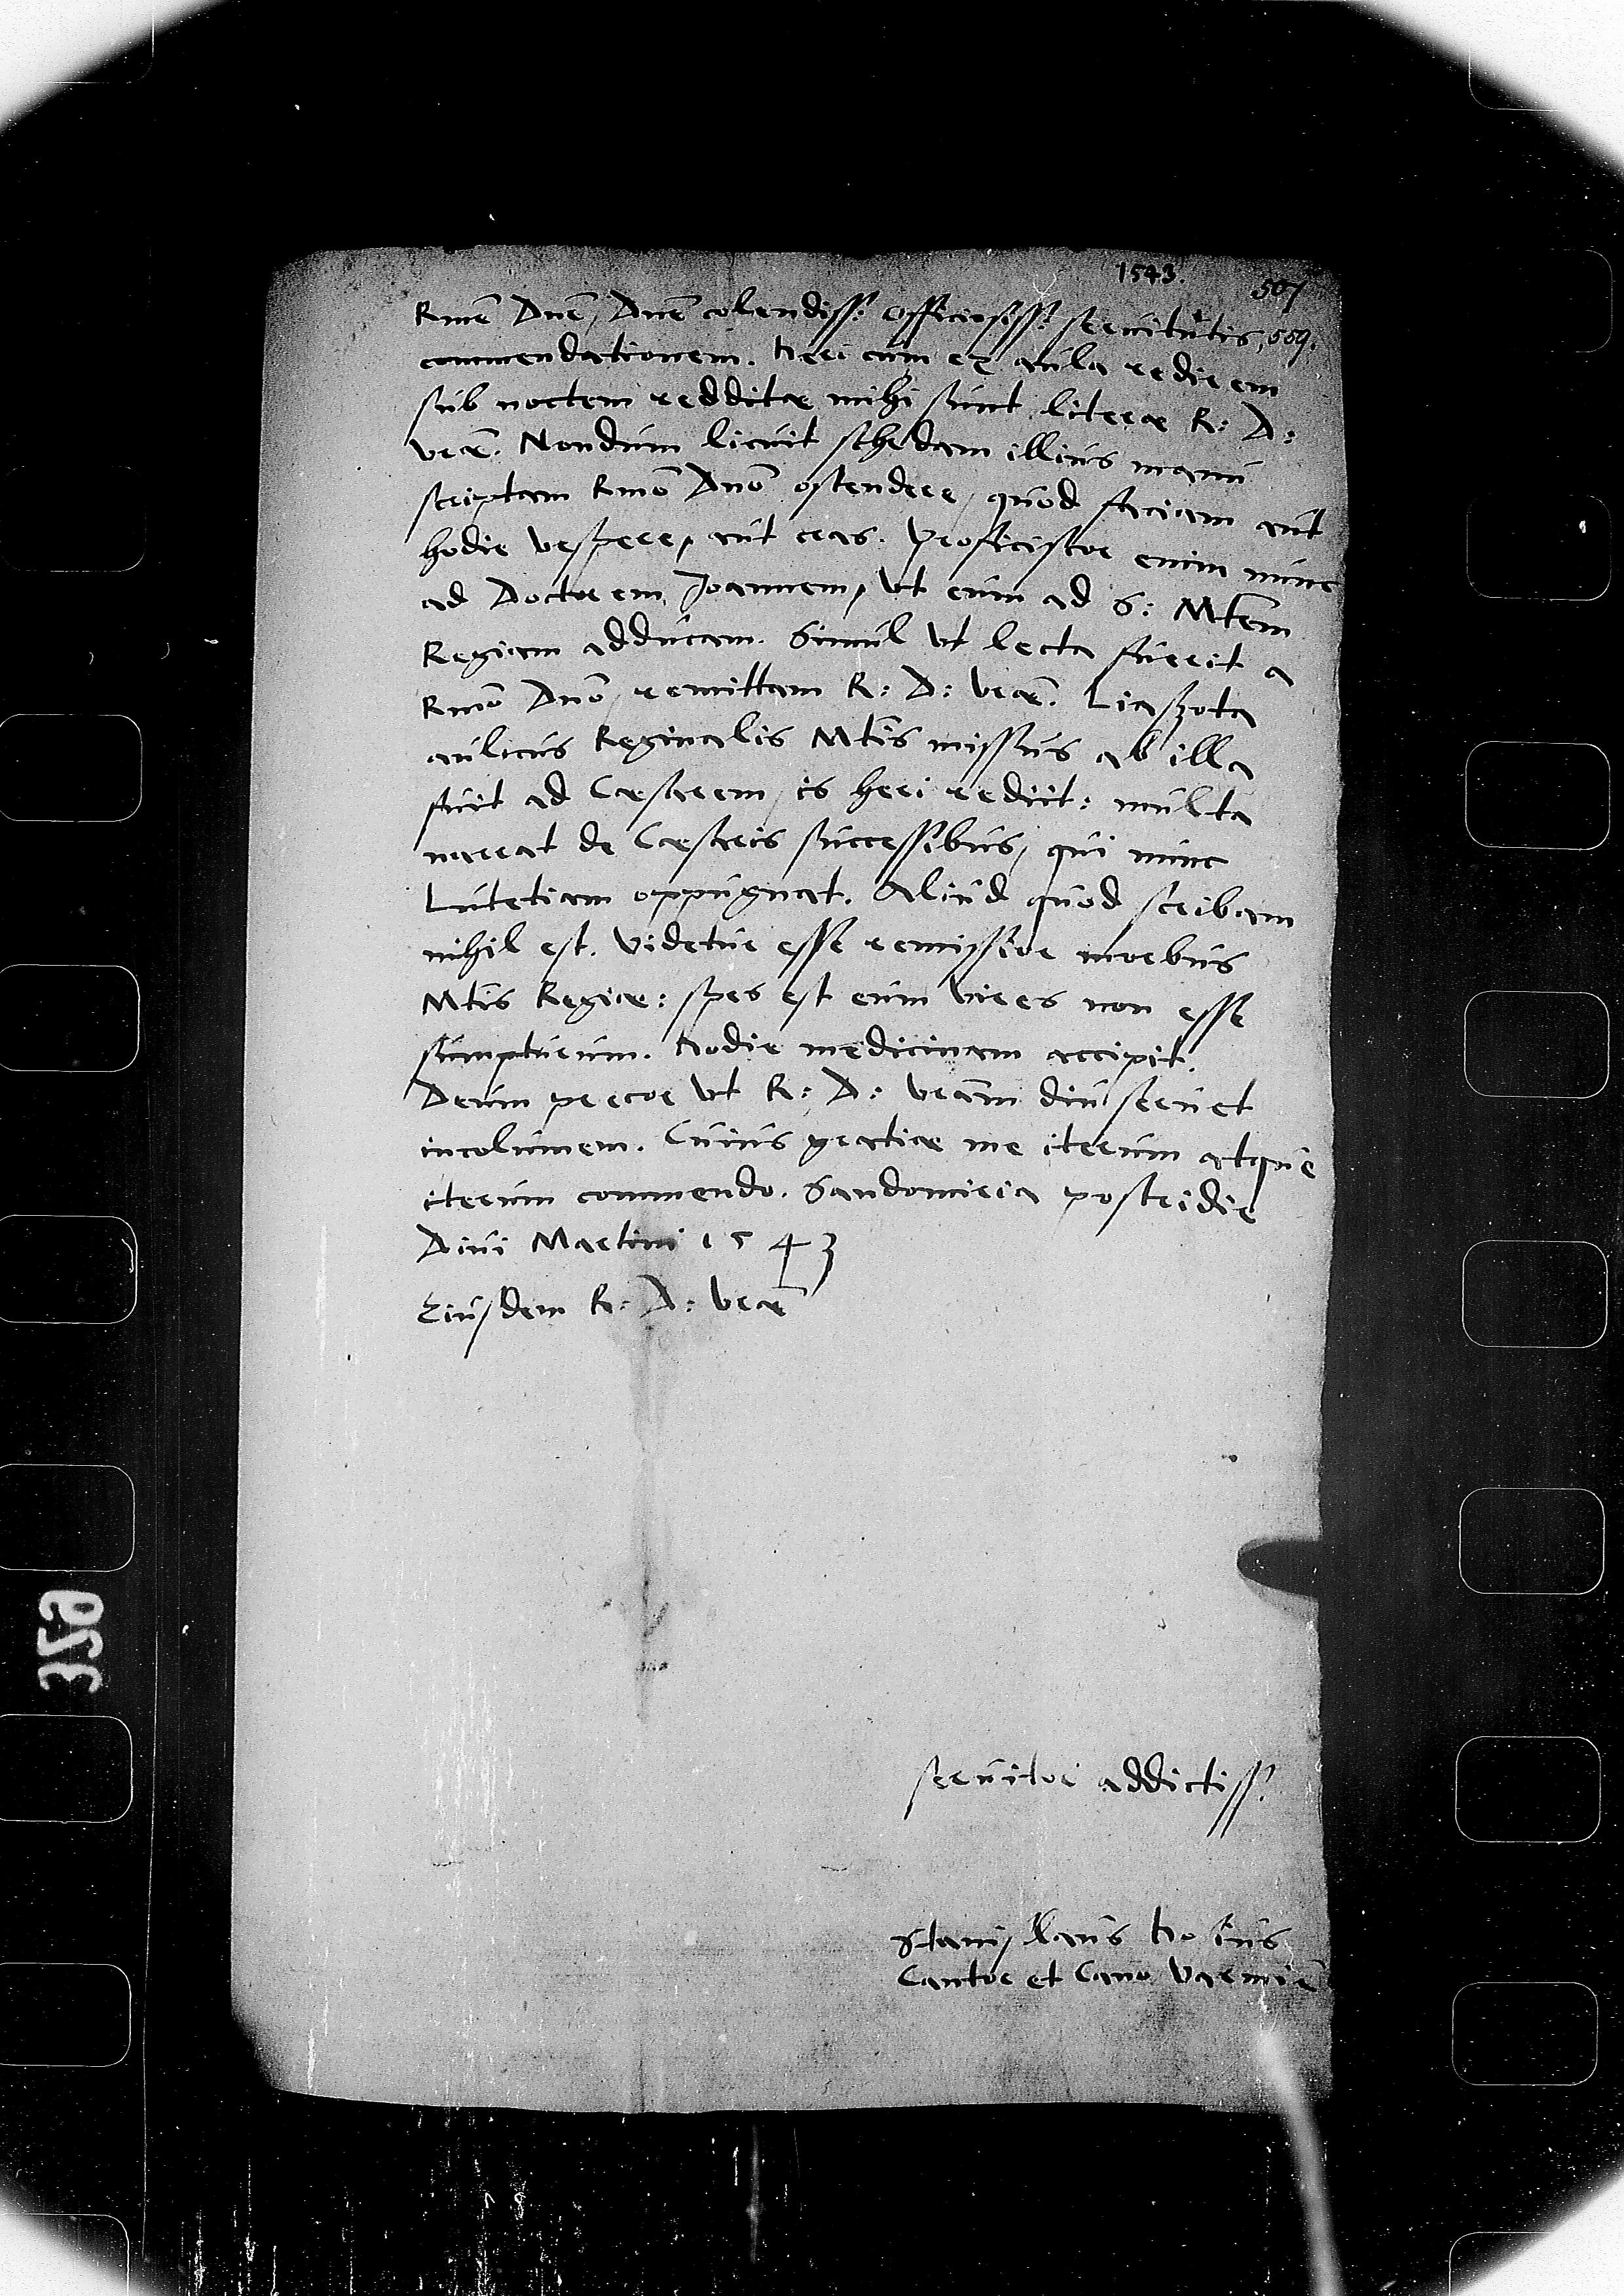 1543.
507
Rme Dne, Dne colendiss. officiosiss. seruitutis, 509.
commendationem. Heri cum ex aula redirem
sub noctem redditae mihi sunt literae R: D:
vrae. Nondum licuit schedam illius manu
scriptam Rmo Dno ostendere, quod faciam aut
hodie vespere, aut cras. Proficiscor enim nunc
ad Doctorem Joannem, vt eum ad S: Mtem
Regiam adducam. Simul vt lecta fuerit a
Rmo Dno, remittam R: D: vrae. Liaszota
aulicus Reginalis Mtis missus ab illa
fuit ad Caesarem, is heri rediit: multa
narrat de Caesaris successibus, qui nunc
Lutetiam oppugnat. Aliud quod scribam
nihil est. Videtur esse remissior morbus
Mtis Regiae: spes est eum vires non esse
sumpturum. Hodie medicinam accipit.
Deum precor vt R: D: vram diu seruet
incolumem. Cuius gratiae me iterum atque
iterum commendo. Sandomiria postridie
Diui Martini 1543
Eiusdem R: D: vrae
seruitor addictiss.
Stanislaus Hosius
Cantor et Cano Varmien
329